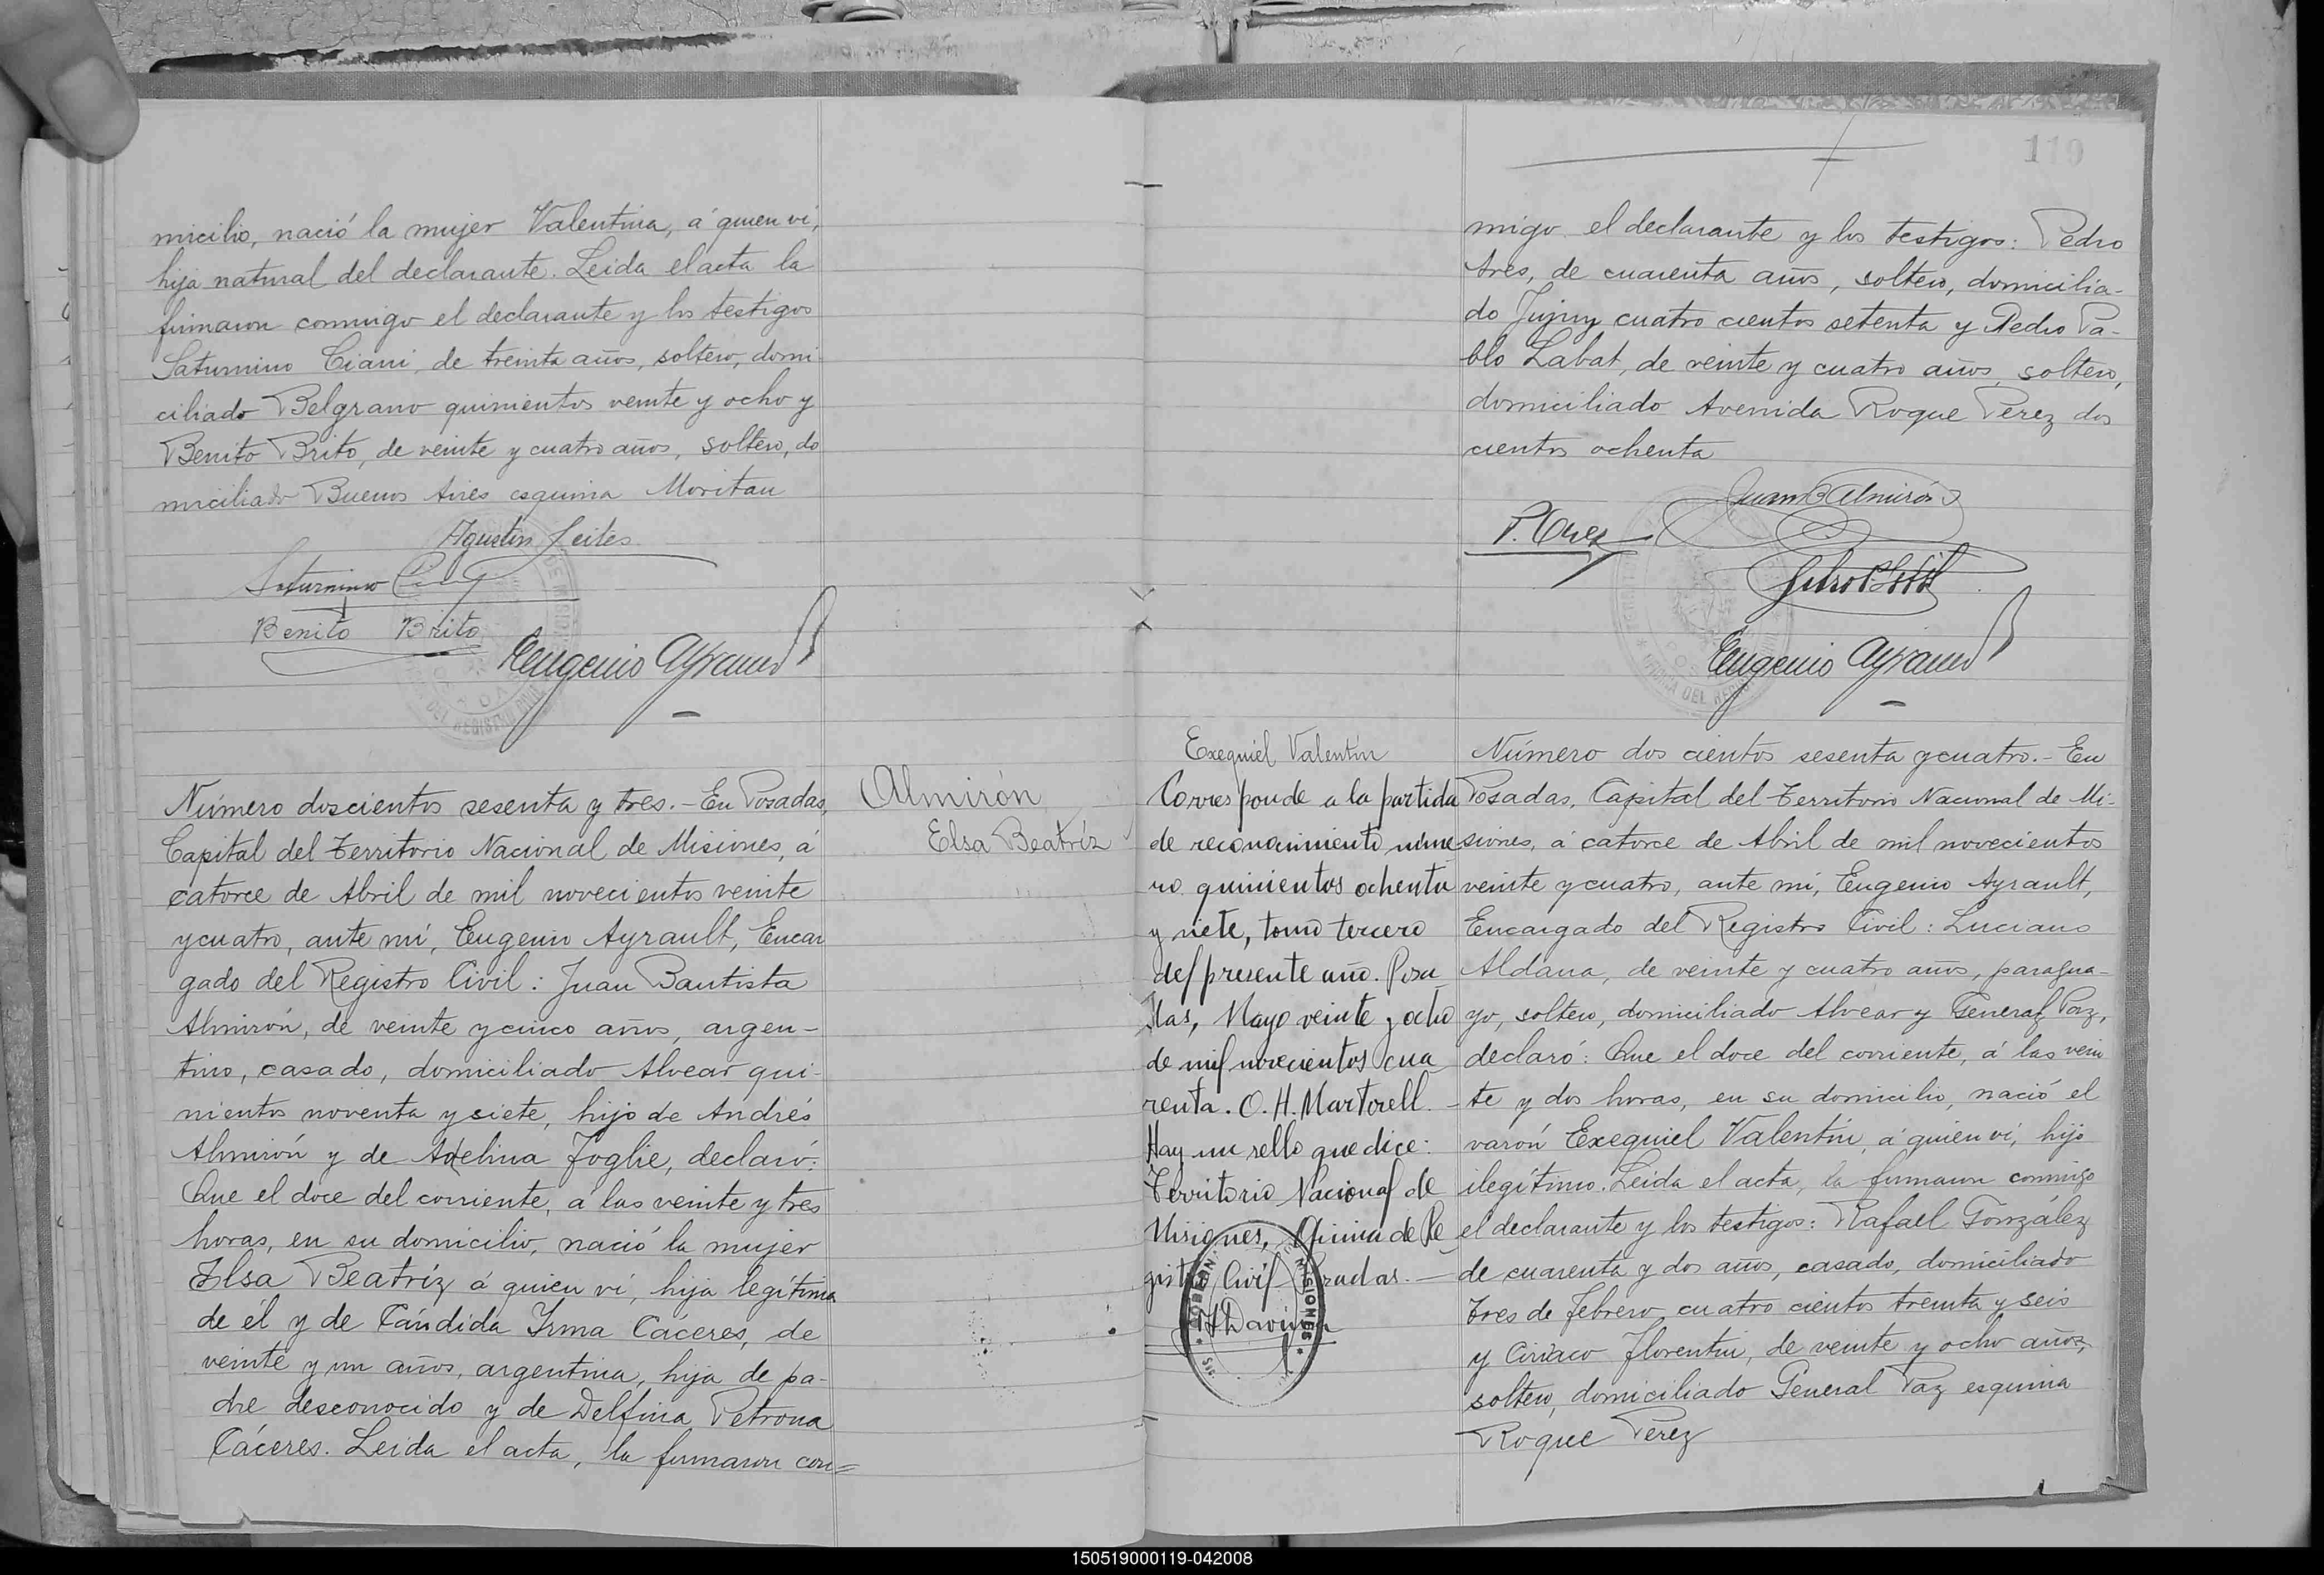 micilio, nació la mujer Valentina, á quien ví,
hija natural del declarante. Leida el acta la
firmaron conmigo el declarante y los testigos
Saturnino Ciani, de treinta años, soltero, domi
ciliado Belgrano quinientos veinte y ocho y
Benito Brito, de veinte y cuatro años, soltero, do
miciliado Buenos Aires esquina Moritan
Agustin Leites
Saturnino
Benito Brito
Eugenio Ayrault
Número doscientos sesenta y tres.- En Posadas,
Capital del Territorio Nacional de Misiones, á
catorce de Abril de mil novecientos veinte
y cuatro, ante mí, Eugenio Ayrault, Encar
gado del Registro Civil: Juan Bautista
Almirón, de veinte y cinco años, argen-
tino, casado, domiciliado Alvear qui-
nientos noventa y siete, hijo de Andrés
Almirón y de Adelina Foglie, declaró:
Que el doce del corriente, á las veinte y tres
horas, en su domicilio, nació la mujer
Elsa Beatríz á quien ví, hija legítima
de él y de Cándida Irma Cáceres, de
veinte y un años, argentina, hija de pa-
dre desconocido y de Delfina Petrona
Cáceres. Leida el acta, la firmaron con=
Almirón
Elsa Beatríz
119
migo el declarante y los testigos: Pedro
Ares, de cuarenta años, soltero, domicilia-
do Jujuy cuatro cientos setenta y Pedro Pa-
blo Labat, de veinte y cuatro años, soltero,
domiciliado Avenida Roque Perez dos
cientos ochenta
Juan B Almirón
P. Ares
Eugenio Ayrault
Exequiel Valentín
Corresponde a la partida
de reconocimiento núme
ro quinientos ochenta
y siete, tomo tercero
del presente año. Posa
das, Mayo veinte y ocho
de mil novecientos cua
renta. O. H. Martorell.-
Hay un sello que dice:
Territorio Nacional de
Misiones, Oficina de Re
gistro Civil Posadas.-
Número dos cientos sesenta y cuatro.- En
Posadas, Capital del Territorio Nacional de Mi-
siones, á catorce de Abril de mil novecientos
veinte y cuatro, ante mí, Eugenio Ayrault,
Encargado del Registro Civil: Luciano
Aldana, de veinte y cuatro años, paragua-
yo, soltero, domiciliado Alvear y General Paz,
declaró: Que el doce del corriente, á las vein
te y dos horas, en su domicilio, nació el
varón Exequiel Valentín, á quien ví, hijo
ilegítimo. Leida el acta, la firmaron conmigo
el declarante y los testigos: Rafael González
de cuarenta y dos años, casado, domiciliado
Tres de Febrero cuatro cientos treinta y seis
y Ciriaco Florentin, de veinte y ocho años,
soltero, domiciliado General Paz esquina
Roque Perez
150519000119-042008